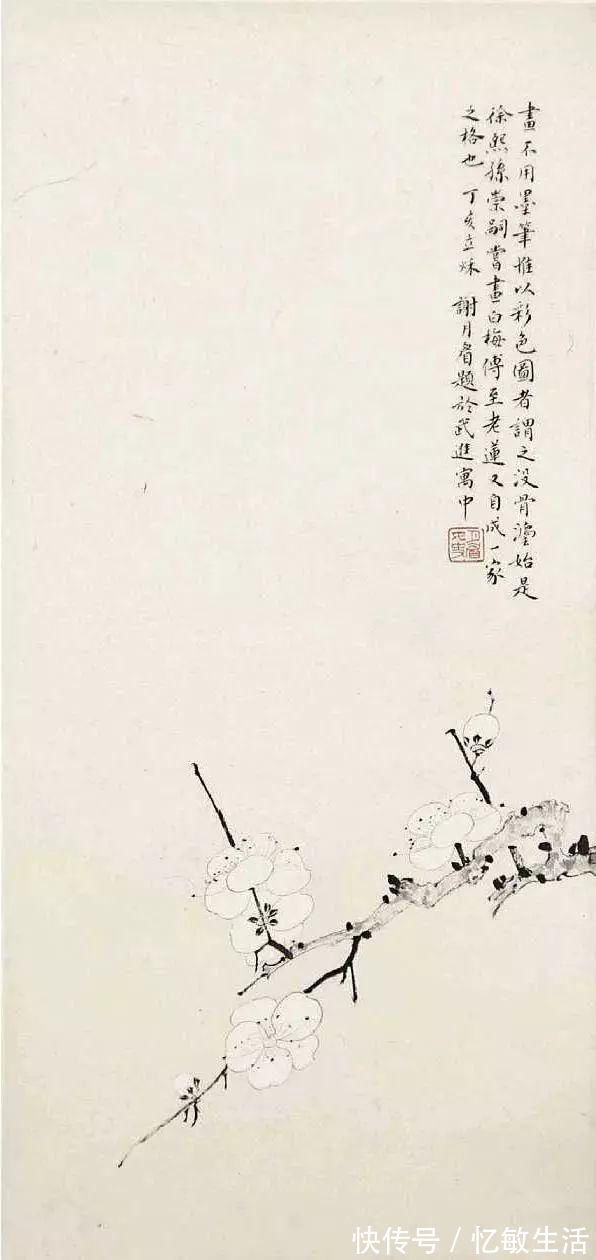 畫不用墨筆惟以彩色圖者謂之没骨灋始是
徐熙孫崇嗣嘗畫白梅傅至老蓮又自成一家
之格也 丁亥立秌 謝月眉題於武進寓中
快传号 / 忆敏生活